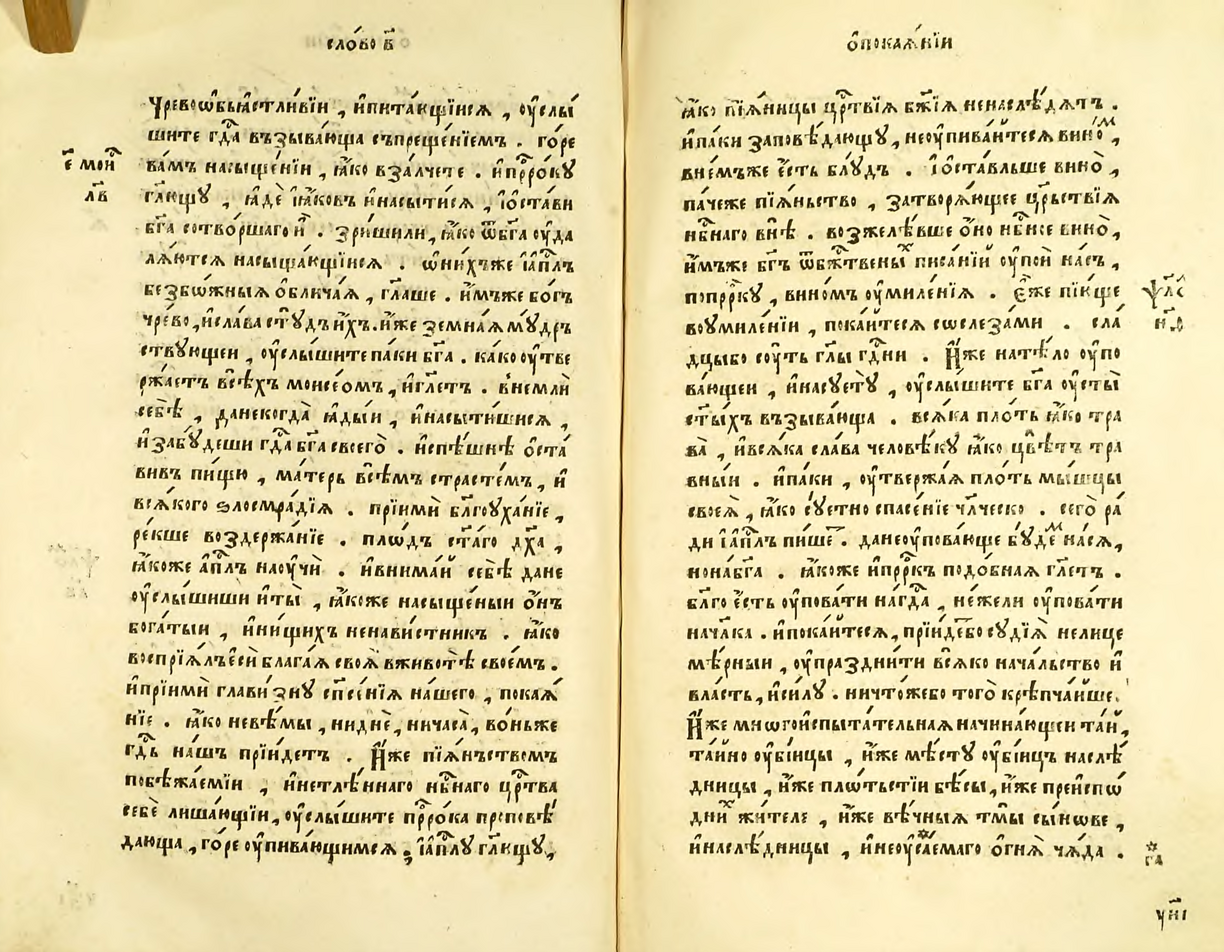 сло́во в҃
Чревоѡбьꙗ́стли́вїи , и҆пита́ющїисѧ , оу҆слы́
шите гд҇а възыва́юща съпреще́нїемъ . го́ре
е҃ мои҇
ва́мъ насыще́нїи , ꙗ҆́ко вза́лчете . и҆прⷪ҇ро́кꙋ
л҃в
гл҃ющꙋ , ꙗ҆дѐ і҆а҆́ковъ и҆насы́тисѧ , і҆ѡ҆ста́ви
бг҃а сотво́ршаго и҆̀ . зри́шили , ꙗ҆́ко ѿбг҃а оу҆да
лѧ́ютсѧ насыща́ющїисѧ . ѡ҆ни́хъже і҆а҆пⷭ҇лъ
безбо́жныѧ ѡ҆блича́ѧ , гл҃аше . и҆́мъже бо́гъ
чре́во , и҆сла́ва стꙋ́дъ и҆́хъ . и҆́же земна́ѧ мꙋ́др
ствꙋющеи , оу҆слы́шите па́ки бг҃а . ка́ко оу҆тве
ржа́етъ всѣ́хъ моисе́омъ , и҆гл҃етъ . вне́мли
себѣ̀ , данекогда̀ ꙗ҆ды́и , и҆насы́тишисѧ ,
и҆забꙋ́деши гд҇а бг҃а своего̀ . и҆спѣ́шнѣ ѡ҆ста́
вивъ пи́щю , ма́терь всѣ́мъ страсте́мъ , и҆
всѧ́кого ѕлосмра́дїѧ . прїимѝ бл҃гоꙋха́нїе ,
ре́кше воздержа́нїе . плѡ́дъ ст҃а́го дх҃а ,
ꙗ҆́коже а҆пⷭ҇лъ наоу҆чѝ . и҆внима́й себѣ̀ дане
оу҆слы́шиши и҆ты̀ , ꙗ҆́коже насыще́ныи ѻ҆́нъ
бога́тыи , и҆ни́щихъ ненави́стникъ . ꙗ҆́ко
воспрїѧ́лъ е҆сѝ блага́ѧ своѧ̀ вживотѣ̀ свое́мъ .
и҆прїимѝ глави́знꙋ сп҇се́нїѧ на́шего , покаѧ́
нїе . ꙗ҆́ко невѣ́мы , ниднѐ , ничаса̀ , во́ньже
гд҇ь на́шъ прїи́детъ . И҆́же пїѧ́нъствомъ
побѣжа́емїи , и҆нетлѣ́ннаго нб҇наго црⷭ҇тва
себѐ лиша́ющїи , оу҆слы́шите прⷪ҇ро́ка преповѣ́
дающа , го́ре оу҆пива́ющимсѧ , і҆а҆пⷭ҇лꙋ гл҃ющꙋ ,
ѡ҆покаѧ́нїи
ꙗ҆́ко пїѧ́ницы црⷭ҇твїѧ бж҃їѧ ненаслѣ́дѧтъ .
и҆па́ки заповѣ́дающꙋ , неоу҆пива́йтесѧ вино́м ,
вне́мъже е҆́сть блꙋ́дъ . і҆ѡ҆ста́вльше вино̀ ,
па́чеже пїѧ́ньство , затворѧ́ющее црⷭ҇ьствїѧ
нб҇наго внѣ̀ . возжелѣ́вше ѻ҆́но нб҇ное вино̀ ,
и҆́мъже бг҃ъ ѿбж҇твены́х писа́нїй оу҆по́й на́съ ,
попрⷪ҇ркꙋ , вино́мъ оу҆миле́нїѧ . Є҆́же пїю́ще
ѱал
воу҆миле́нїи , пока́йтесѧ сослеза́ми . сла́
н҃ѳ
дцыбо сꙋ́ть гл҃ы гд҇ни . И҆́же натѣ́ло оу҆по
ва́ющеи , и҆насꙋетꙋ̀ , оу҆слы́шите бг҃а оу҆сты̀
ст҃ы́хъ възыва́юща . всѧ́ка пло́ть ꙗ҆́ко тра
ва̀ , и҆всѧ́ка сла́ва человѣ́кꙋ ꙗ҆́ко цвѣ́тъ тра
вны́и . и҆па́ки , оу҆твержа́ѧ пло́ть мы́шцы
своеѧ̀ , ꙗ҆́ко сꙋ́етно спасе́нїе чл҃ческо . сего̀ ра́
ди і҆а҆пⷭ҇лъ пи́ше . данеоу҆пова́юще бꙋ́дем насѧ̀ ,
нонабг҃а . ꙗ҆́коже и҆прⷪ҇ркъ подо́бнаѧ гл҃етъ .
бл҃го е҆́сть оу҆пова́ти нагд҇а , не́жели оу҆пова́ти
начл҃ка . и҆пока́йтесѧ , прїи́детбо сꙋдїѧ̀ нелице
мѣ́рныи , оу҆праздни́ти всѧ́ко нача́льство и҆
вла́сть , и҆си́лꙋ . ничто́жебо того̀ крѣпча́йше .
И҆́же мнѡгоиспыта́тельнаѧ начина́ющеи та́й ,
та́йно оу҆бі́ицы , и҆́же мѣ́стꙋ оу҆бі́ицъ наслѣ́
дницы , и҆́же плѡ́тьстїи бѣ́сы , и҆́же преиспѡ́
дних жи́теле , и҆́же вѣ́чныѧ тмы̀ сы́нѡве ,
и҆наслѣ́дницы , и҆неоуга́саемаго ѻ҆гнѧ̀ ча́да .
га
уни